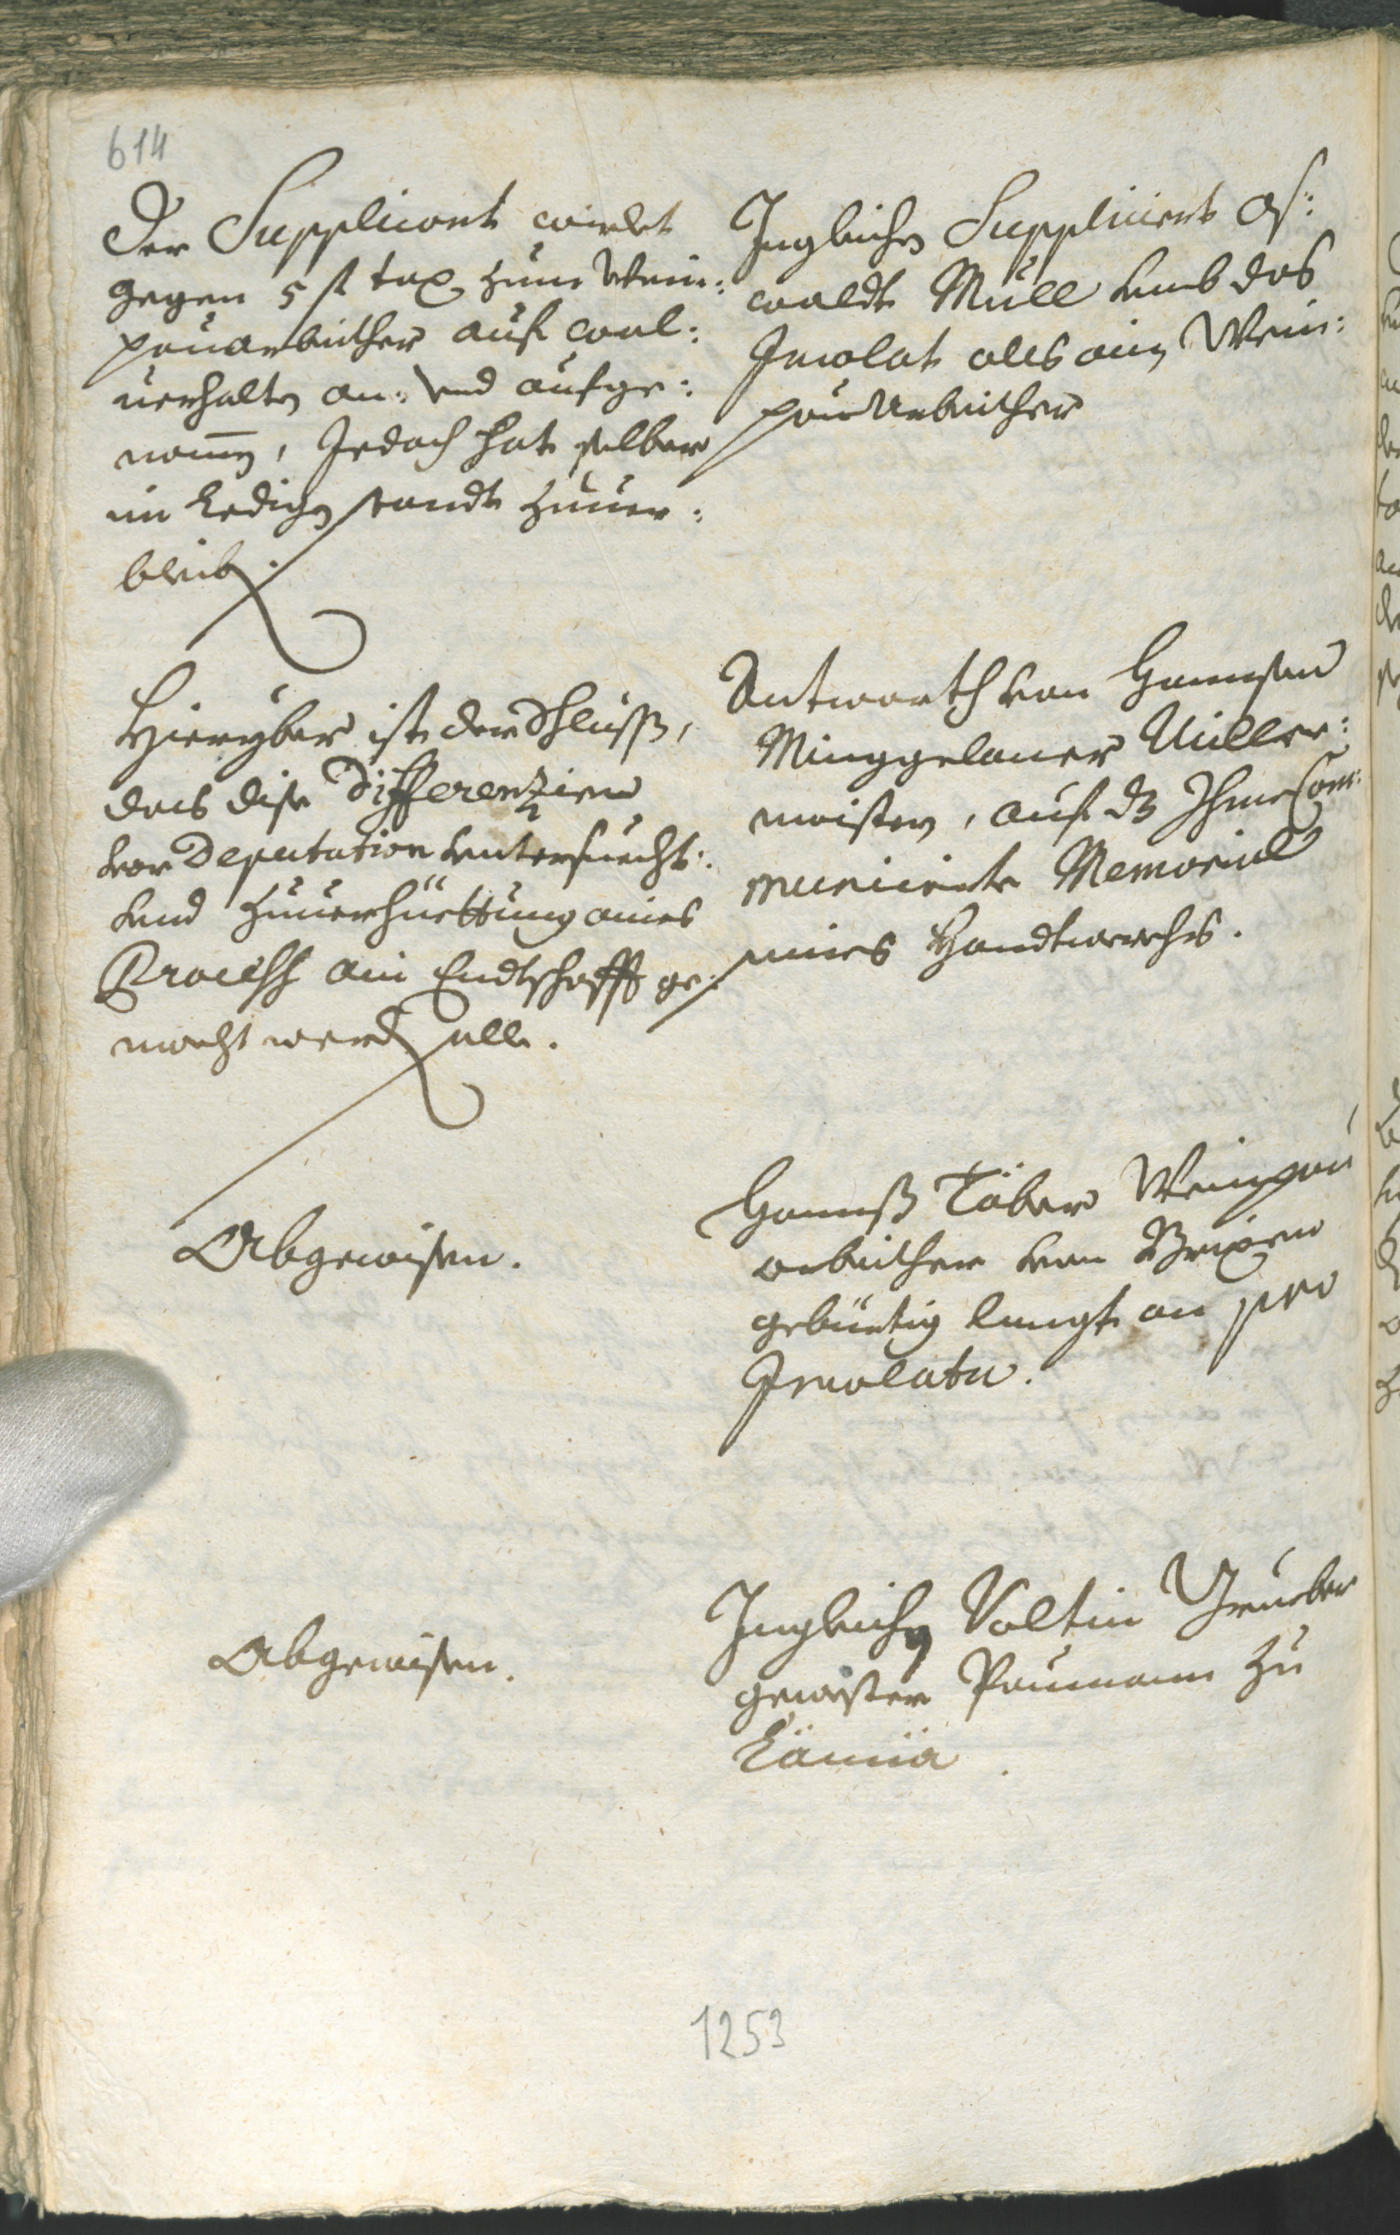 614
Der Supplicant wirdet
gegen 5 fl tax zum Wein-
pauarbeither auf wol-
uerhalten an: vnd aufge-
nomen, Jedoch hat selber
im Ledigen standt zuuer-
bleiben.
Ingleichen Suppliciert Oß-
waldt Müll vmb das
Jncolat als ain Wein-
pauarbeither
Hierüber ist der Schluss,
das dise Differenzien
vor Deputation vntersuecht:
vnd zuuerhüettung aines
Process ain Endtschafft ge-
macht werden solle.
Antworth von Hannsen
Minggelauer Müller-
maister, auf dz Ihme Com-
municierte Memorial
aines Handtwerchs.
Abgewisen.
Hannß Täber Weinpau
arbeither von Brixen
gebürtig langt an pro
Jncolatu.
Abgewisen.
Ingleichen Valtin Grueber
gewester Paumann zu
Läninä.
1253